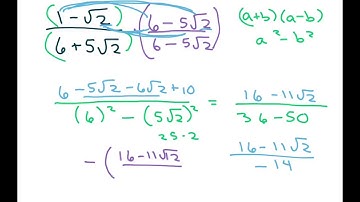 (1-√2)/(6+5√2) (6-5√2)/(6-5√2)
(a+b)(a-b)
a²-b²
(6-5√2-6√2+10)/((6)²-(5√2)²) = (16-11√2)/(36-50)
25·2
-(16-11√2
(16-11√2)/(-14)